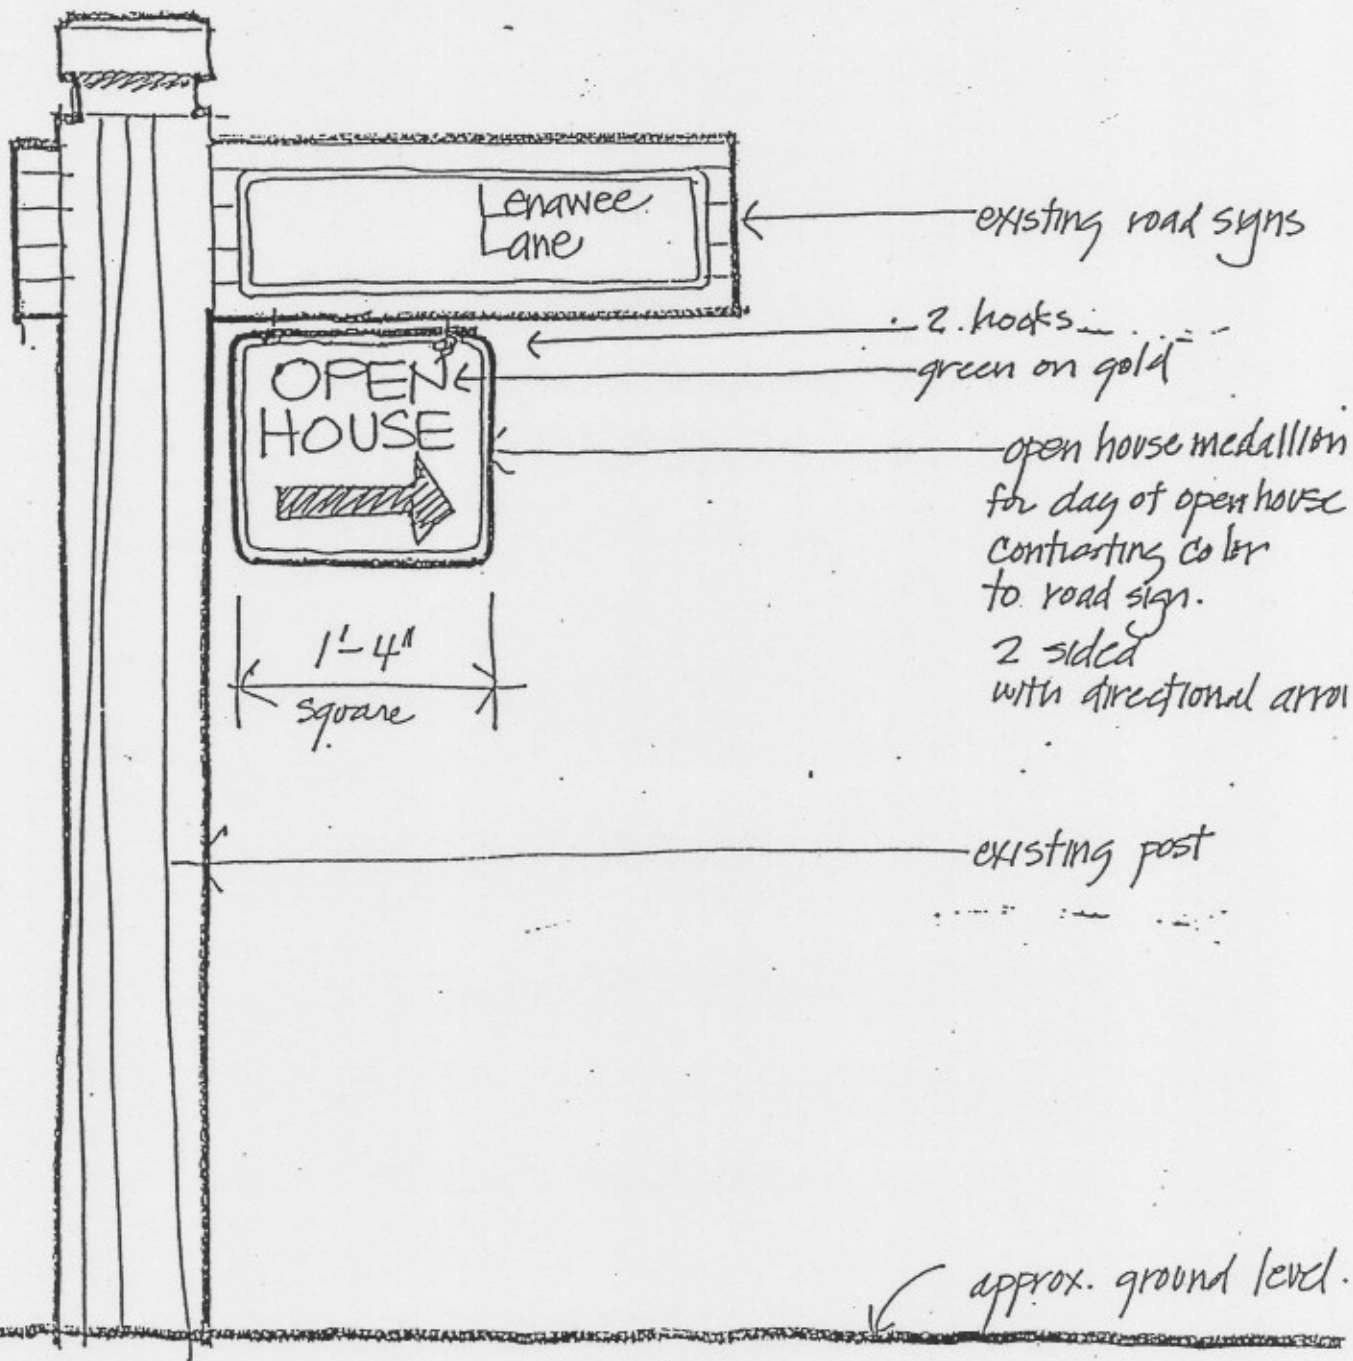 Lenawee
Lane
existing road signs
2 hooks
green on gold
OPEN
HOUSE
open house medallion
for day of open house
contrasting color
to road sign.
2 sided
with directional arro
1'-4"
square
existing post
approx. ground level.